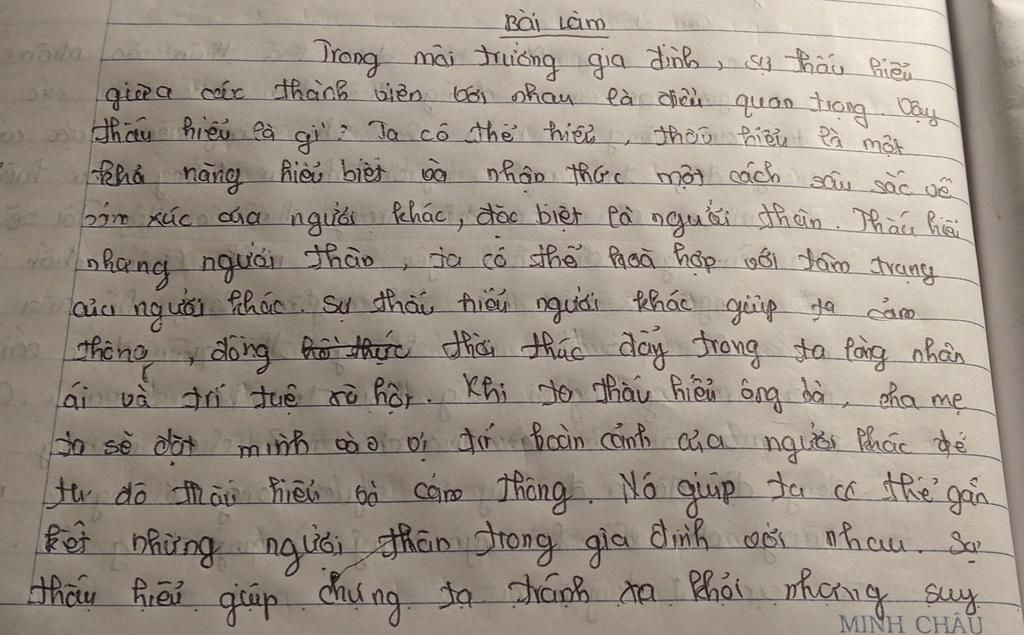 Bài làm
Trong môi trường gia đình, sự thấu hiểu
giữa các thành viên với nhau là điều quan trọng. Vậy
thấu hiểu là gì? Ta có thể hiểu, thấu hiểu là một
khả năng hiểu biết và nhận thức một cách sâu sắc về
cảm xúc của người khác, đặc biệt là người thân. Thấu hiểu
nhưng người thân, ta có thể hoà hợp với tâm trạng
của người khác. Sự thấu hiểu người khác giúp ta cảm
thông, đồng thời thúc đẩy trong ta lòng nhân
ái và trí tuệ xã hội. Khi ta thấu hiểu ông bà, cha mẹ
ta sẽ đặt mình vào vị trí hoàn cảnh của người khác để
từ đó thấu hiểu và cảm thông. Nó giúp ta có thể gắn
kết những người thân trong gia đình với nhau. Sự
thấu hiểu giúp chúng ta tránh ra khỏi nhưng suy
MINH CHÂU